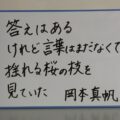 答えはある
けれど言葉はまだなくて
揺れる桜の枝を
見ていた　岡本真帆